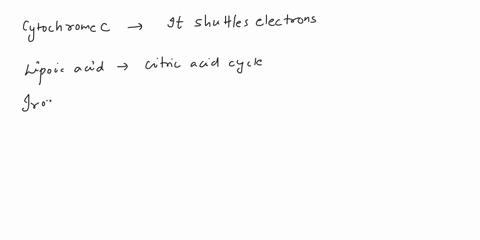 Cytochrome C → It shuttles electrons
Lipoic acid → citric acid cycle
Iro